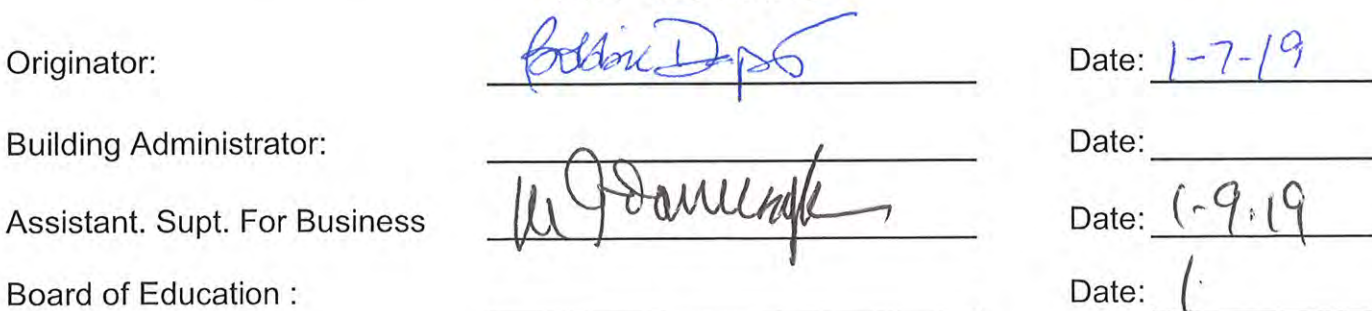 Originator: Date: 1-7-19
Building Administrator: Date:
Assistant. Supt. For Business Date: 1-9.19
Board of Education : Date: